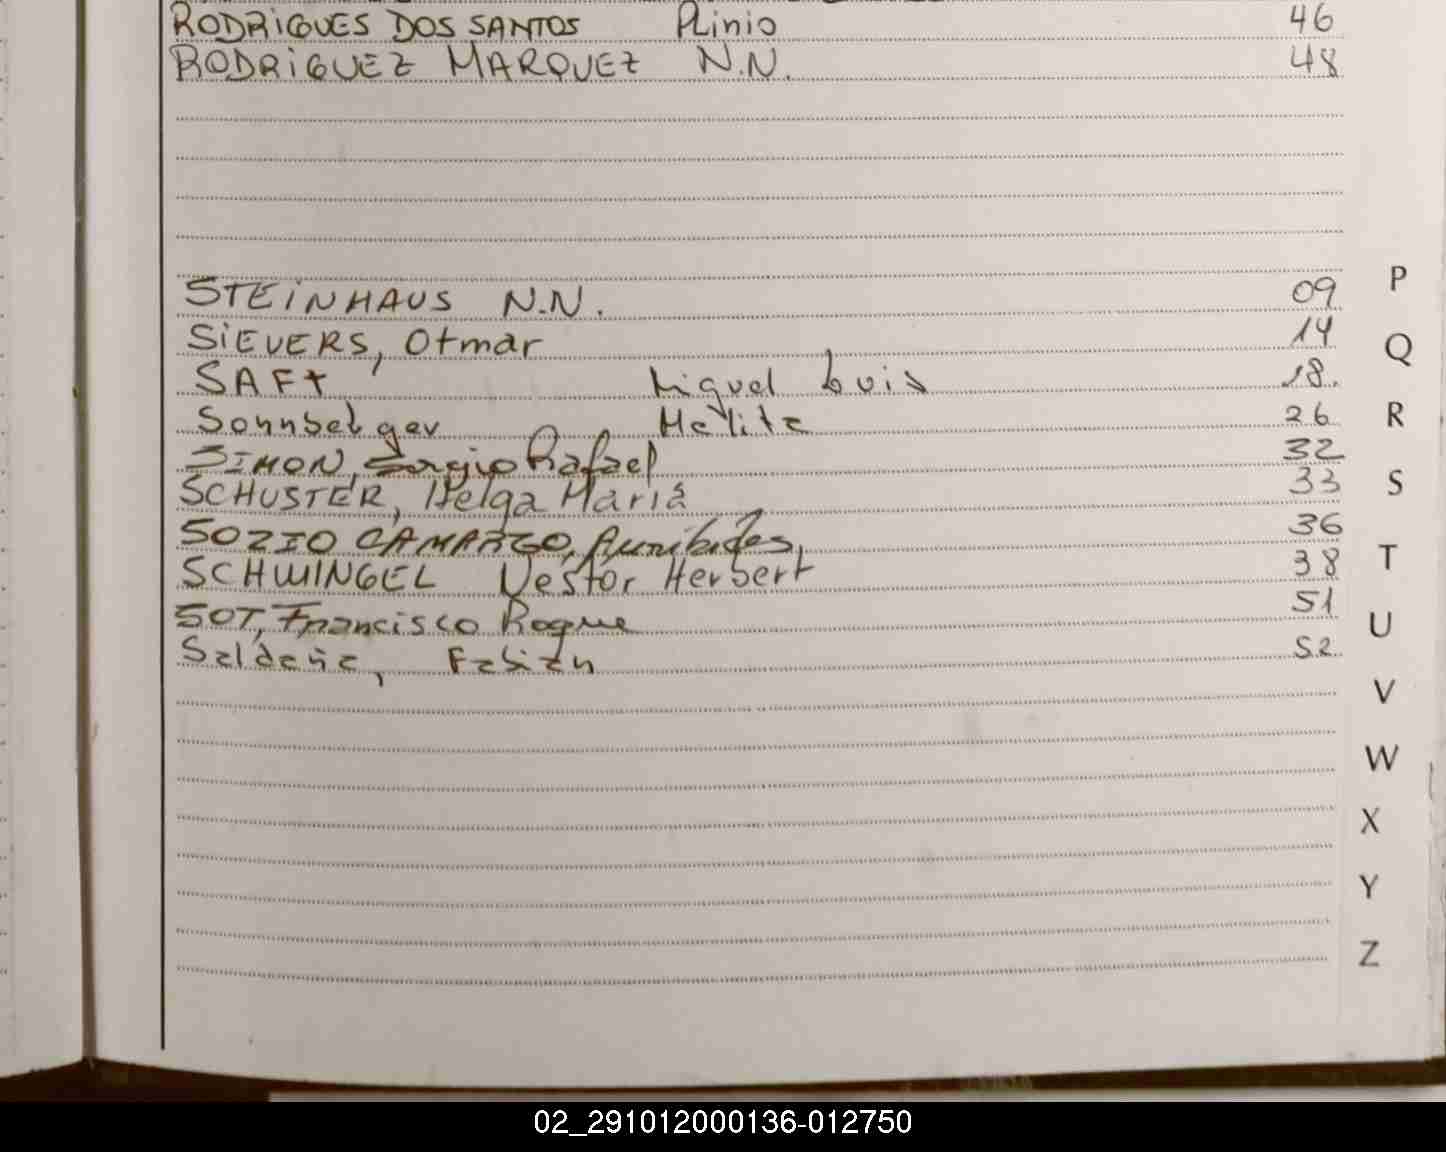 RODRIGUES DOS SANTOS Plinio 46
RODRIGUEZ MARQUEZ N.N. 48
STEINHAUS N.N. 09
SIEVERS, Otmar 14
SAFT Miguel Luis 18.
Sonnbelger Melita 26
SIMON, Sergio Rafael 32
SCHUSTER, Helga Maria 33
SOZZIO CAMARGO, 36
SCHWINGEL Nestor Herbert 38
SOT, Francisco Roque 51
Saldaña, Fabian 52
P
Q
R
S
T
U
V
W
X
Y
Z
02_291012000136-012750